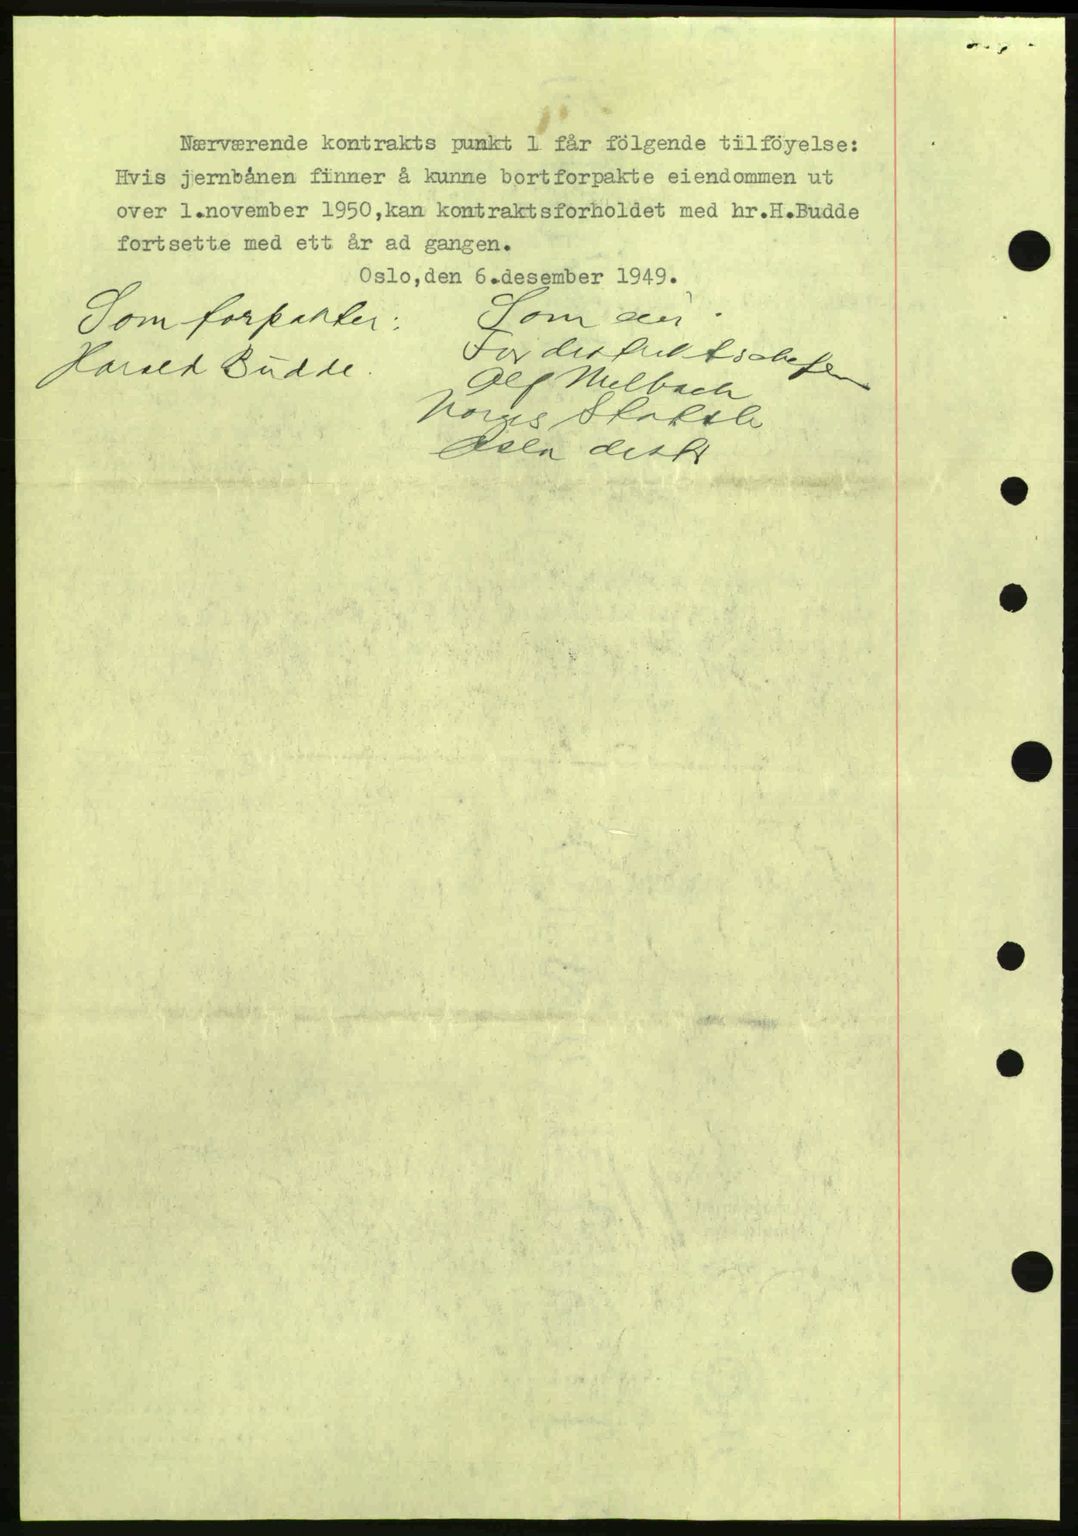 Nærværende kontrakts punkt 1 får fölgende tilföyelse:
Hvis jernbånen finner å kunne bortforpakte eiendommen ut
over 1.november 1950,kan kontraktsforholdet med hr.H.Budde
fortsette med ett år ad gangen.
Oslo,den 6.desember 1949.
Som forpakter:
Harald Budde.
Som eier.
For distriktschefen
Alf
Norges Statsb
Oslo distr